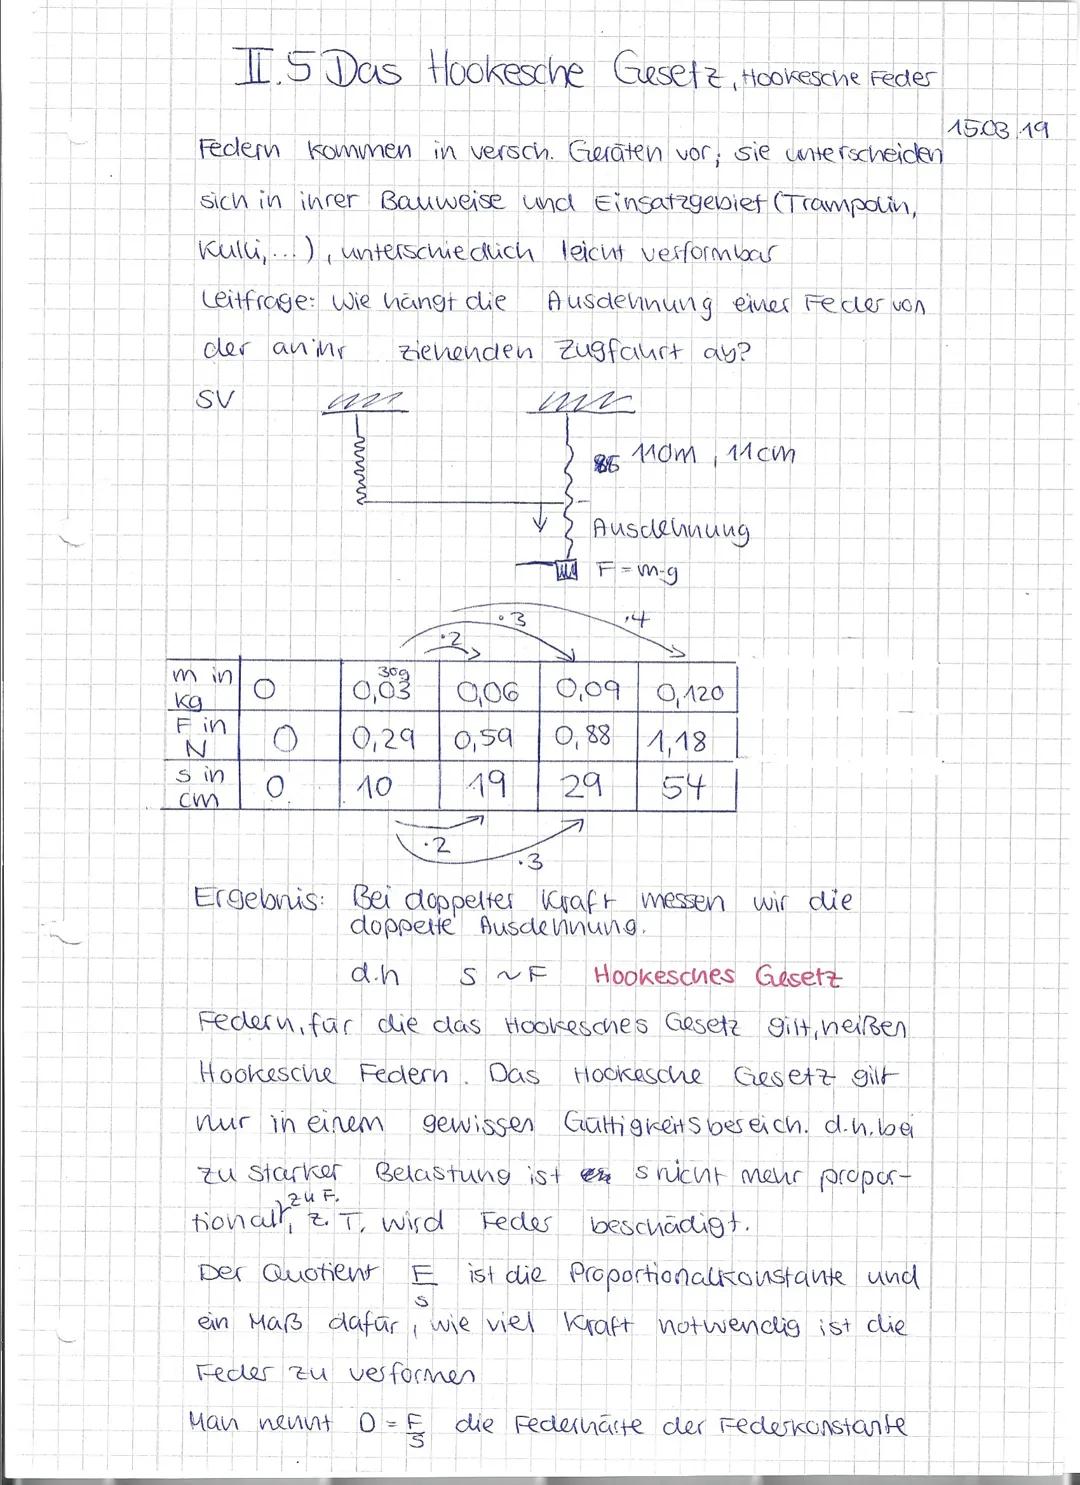 II.5 Das Hookesche Gesetz, Hookesche Feder
15.03.19
Federn kommen in versch. Geräten vor; sie unterscheiden
sich in ihrer Bauweise und Einsatzgebiet (Trampolin,
Kulli,...), unterschiedlich leicht verformbar
Leitfrage: Wie hängt die Ausdehnung einer Feder von
der an ihr ziehenden Zugfahrt ab?
SV
11cm
Ausdehnung
F = m·g
·2 ·3 ·4
m in kg 0 30g 0,03 0,06 0,09 0,120
F in N 0 0,29 0,59 0,88 1,18
s in cm 0 10 19 29 54
·2 ·3
Ergebnis: Bei doppelter Kraft messen wir die
doppelte Ausdehnung.
d.h s ~ F Hookesches Gesetz
Federn, für die das Hookesches Gesetz gilt, heißen
Hookesche Federn. Das Hookesche Gesetz gilt
nur in einem gewissen Gültigkeitsbereich. d.h. bei
zu starker Belastung ist s nicht mehr propor-
tional zu F., z.T. wird Feder beschädigt.
Der Quotient F/s ist die Proportionalkonstante und
ein Maß dafür, wie viel Kraft notwendig ist die
Feder zu verformen
Man nennt D = F/s die Federhärte der Federkonstante